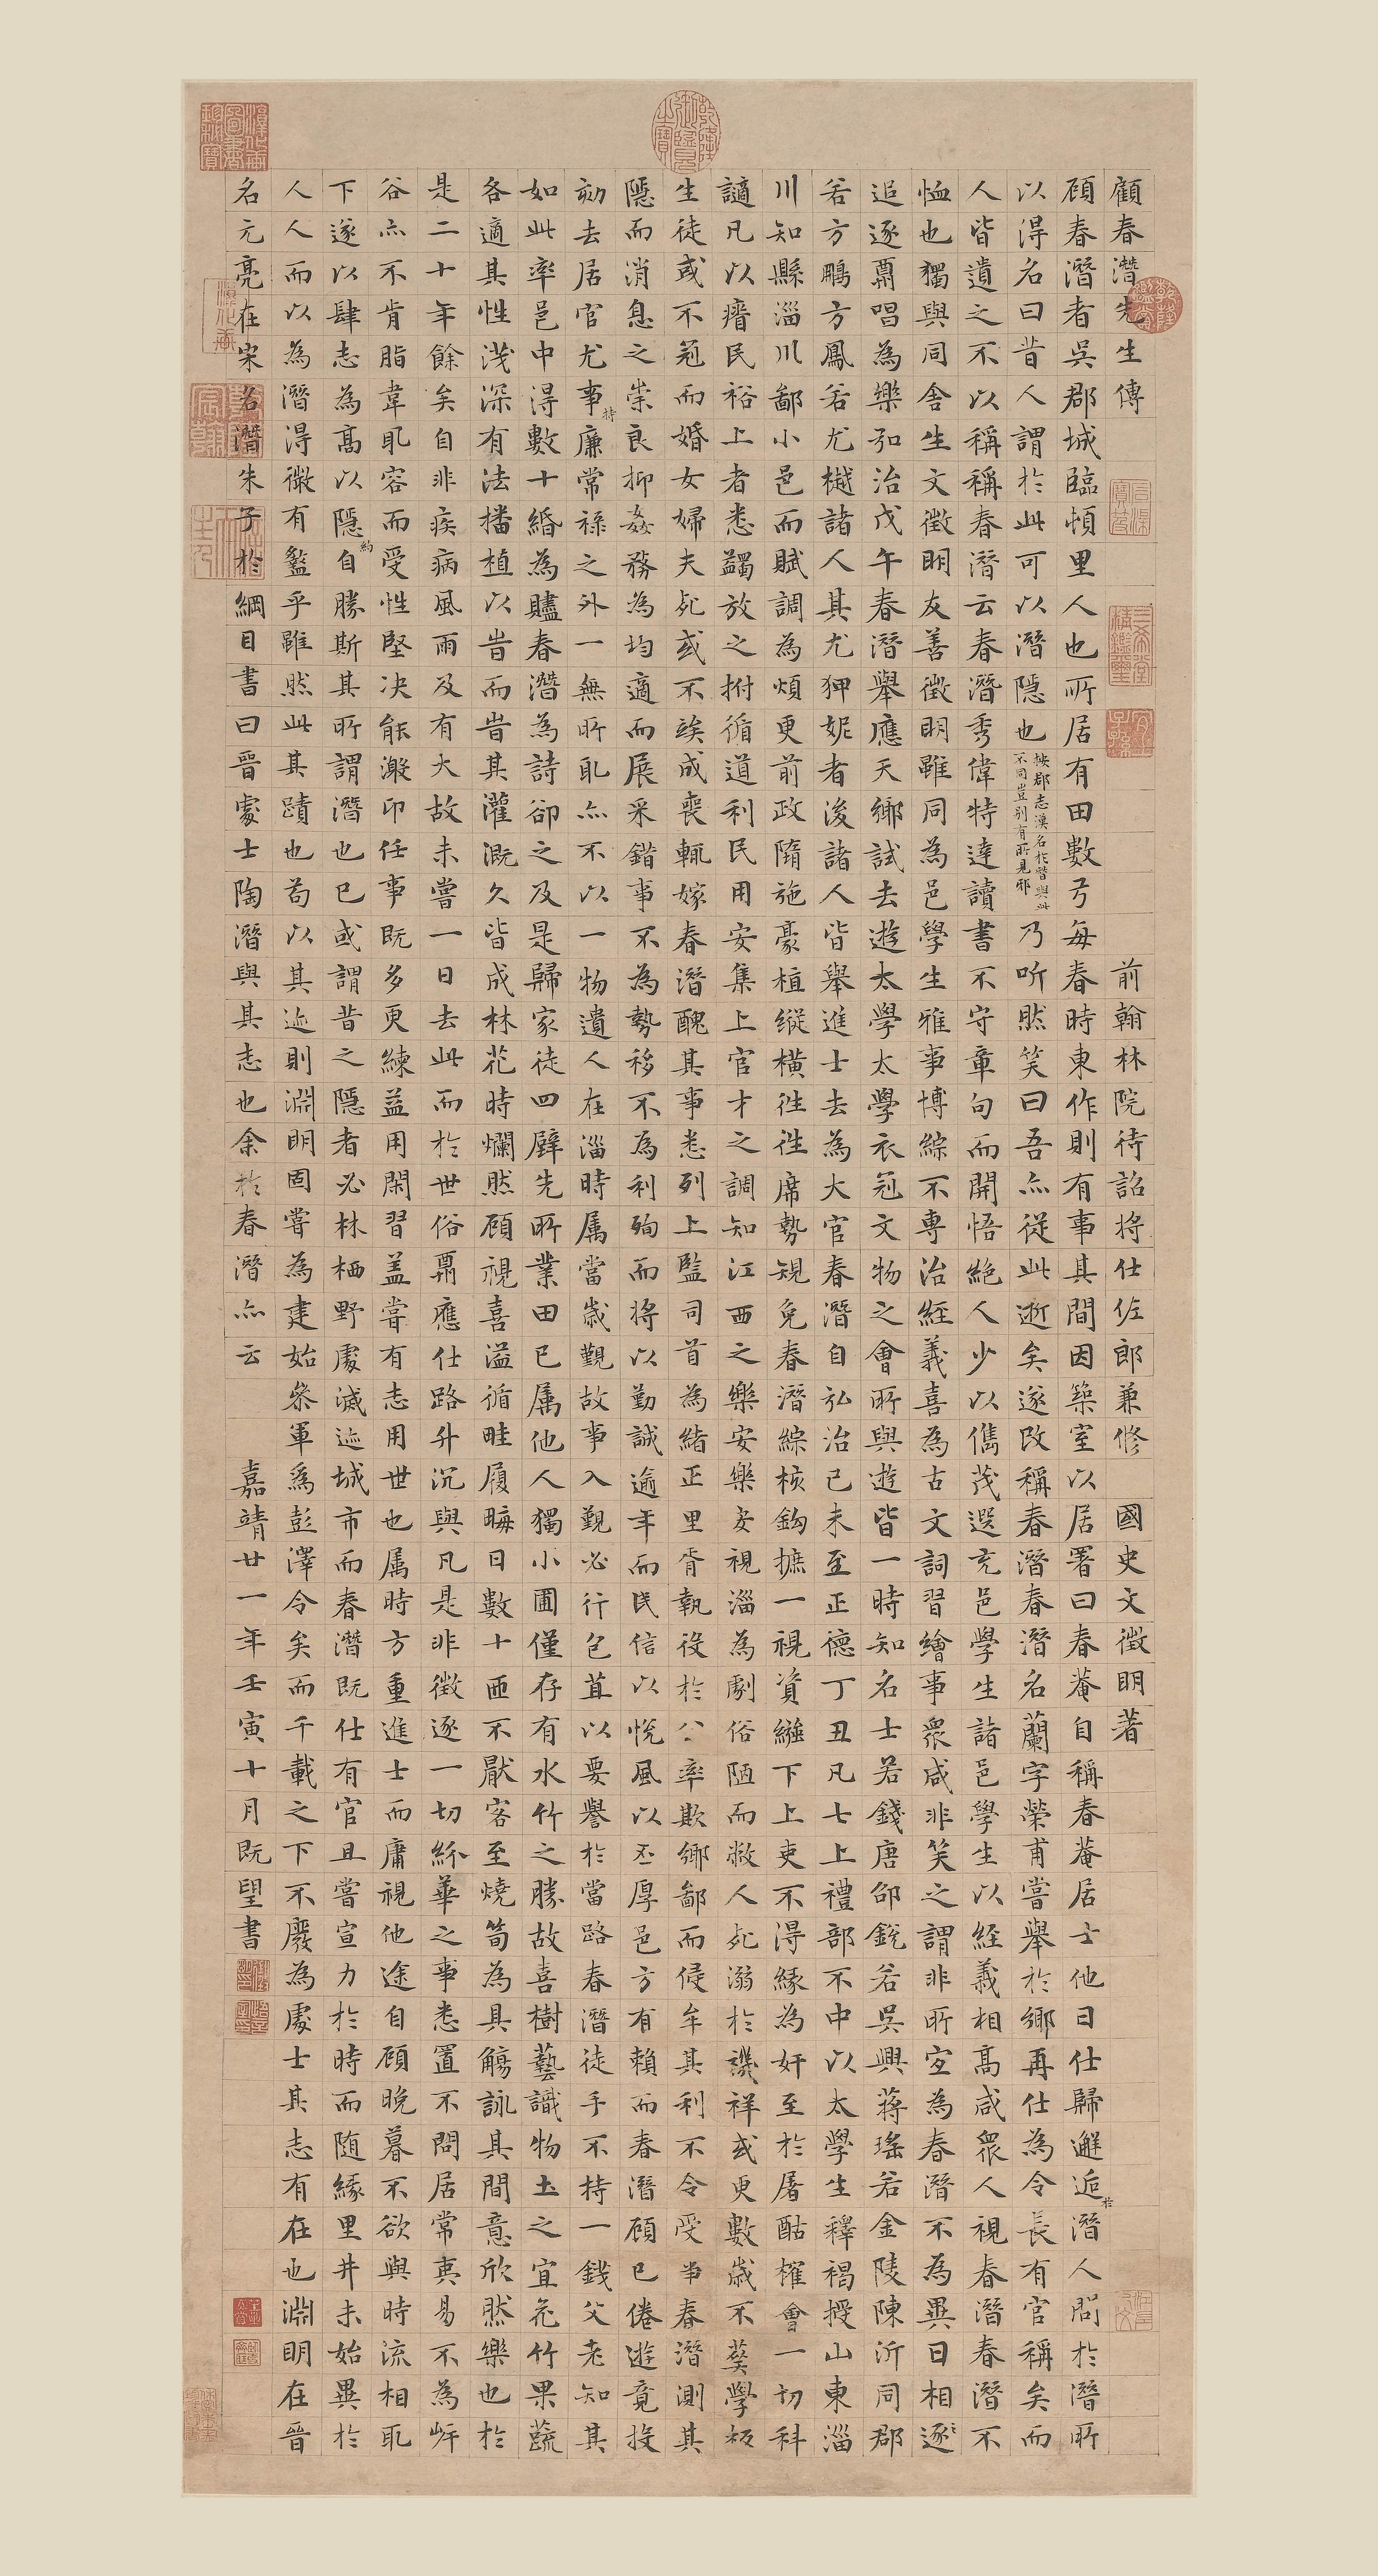 顧春潛先生傳　前翰林院待詔將仕佐郎兼修　國史文徵明著
顧春潛者吳郡城臨頓里人也所居有田數弓每春時東作則有事其間因築室以居署曰春菴自稱春菴居士他日仕歸邂逅於潛人問於潛所
以得名曰昔人謂於此可以潛隱也按郡志漢名於朁與此不同豈別有所見邪乃听然笑曰吾亦從此逝矣遂改稱春潛春潛名蘭字榮甫嘗舉於鄉再仕為令長有官稱矣而
人皆遺之不以稱稱春潛云春潛秀偉特達讀書不守章句而開悟絕人少以儁茂選充邑學生諸邑學生以經義相高咸衆人視春潛春潛不
恤也獨與同舍生文徵明友善徵明雖同為邑學生雅事博綜不專治經義喜為古文詞習繪事衆咸非笑之謂非所宜為春潛不為異日相逐
追逐賡唱為樂弘治戊午春潛舉應天鄉試去遊太學太學衣冠文物之會所與遊皆一時知名士若錢唐邵銳若吳興蔣瑤若金陵陳沂同郡
若方鵬方鳳若尤樾諸人其尤狎妮者後諸人皆舉進士去為大官春潛自弘治己未至正德丁丑凡七上禮部不中以太學生釋褐授山東淄
川知縣淄川鄙小邑而賦調為煩更前政隋施豪植縱橫往往席勢規免春潛綜核鉤摭一視資下上吏不得緣為奸至於屠酤榷會一切科
謫凡以瘠民裕上者悉蠲放之拊循道利民用安集上官才之調知江西之樂安樂安視淄為劇俗陋而敝人死溺於禨祥或更數歲不塟學校
生徒或不冠而婚女婦夫死或不俟成喪輒嫁春潛醜其事悉列上監司首為緒正里胥執役於公率欺鄉鄙而侵牟其利不令受事春潛測其
隱而消息之崇良抑姦務為均適而展采錯事不為勢移不為利殉而將以勤誠逾年而民信以悅風以丕厚邑方有賴而春潛顧已倦遊竟投
劾去居官尤事持廉常祿之外一無所取亦不以一物遺人在淄時属當歲覲故事入覲必行包苴以要譽於當路春潛徒手不持一錢父老知其
如此率邑中得數十緡為贐春潛為詩卻之及是歸家徒四壁先所業田已属他人獨小圃僅存有水竹之勝故喜樹藝識物土之宜花竹果蔬
各適其性淺深有法播植以旹而旹其灌溉久皆成林花時爛然顧視喜溢循畦履畮日數十匝不厭客至燒筍為具觴詠其間意欣然樂也於
是二十年餘矣自非疾病風雨及有大故未嘗一日去此而於世俗酬應仕路升沉與凡是非徵逐一切紛華之事悉置不問居常夷易不為岸
谷亦不肯脂韋取容而受性堅決能激卬任事既多更練益用閑習盖嘗有志用世也属時方重進士而庸視他途自顧晚暮不欲與時流相取
下遂以肆志為高以隱約自勝斯其所謂潛也已或謂昔之隱者必林栖野處滅迹城市而春潛既仕有官且嘗宣力於時而随緣里井未始異於
人人而以為潛得微有盭乎雖然此其蹟也苟以其迹則淵明固嘗為建始參軍為彭澤令矣而千載之下不廢為處士其志有在也淵明在晉
名元亮在宋名潛朱子於綱目書曰晉處士陶潛與其志也余於春潛亦云　嘉靖廿一年壬寅十月既望書